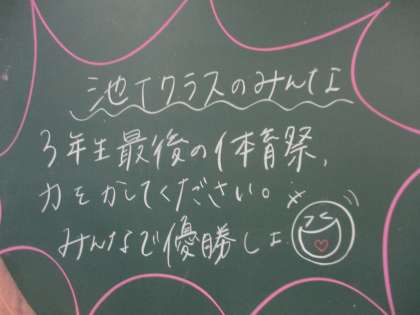 池Tクラスのみんな
3年生最後の体育祭、
力をかしてください。
みんなで優勝しよ